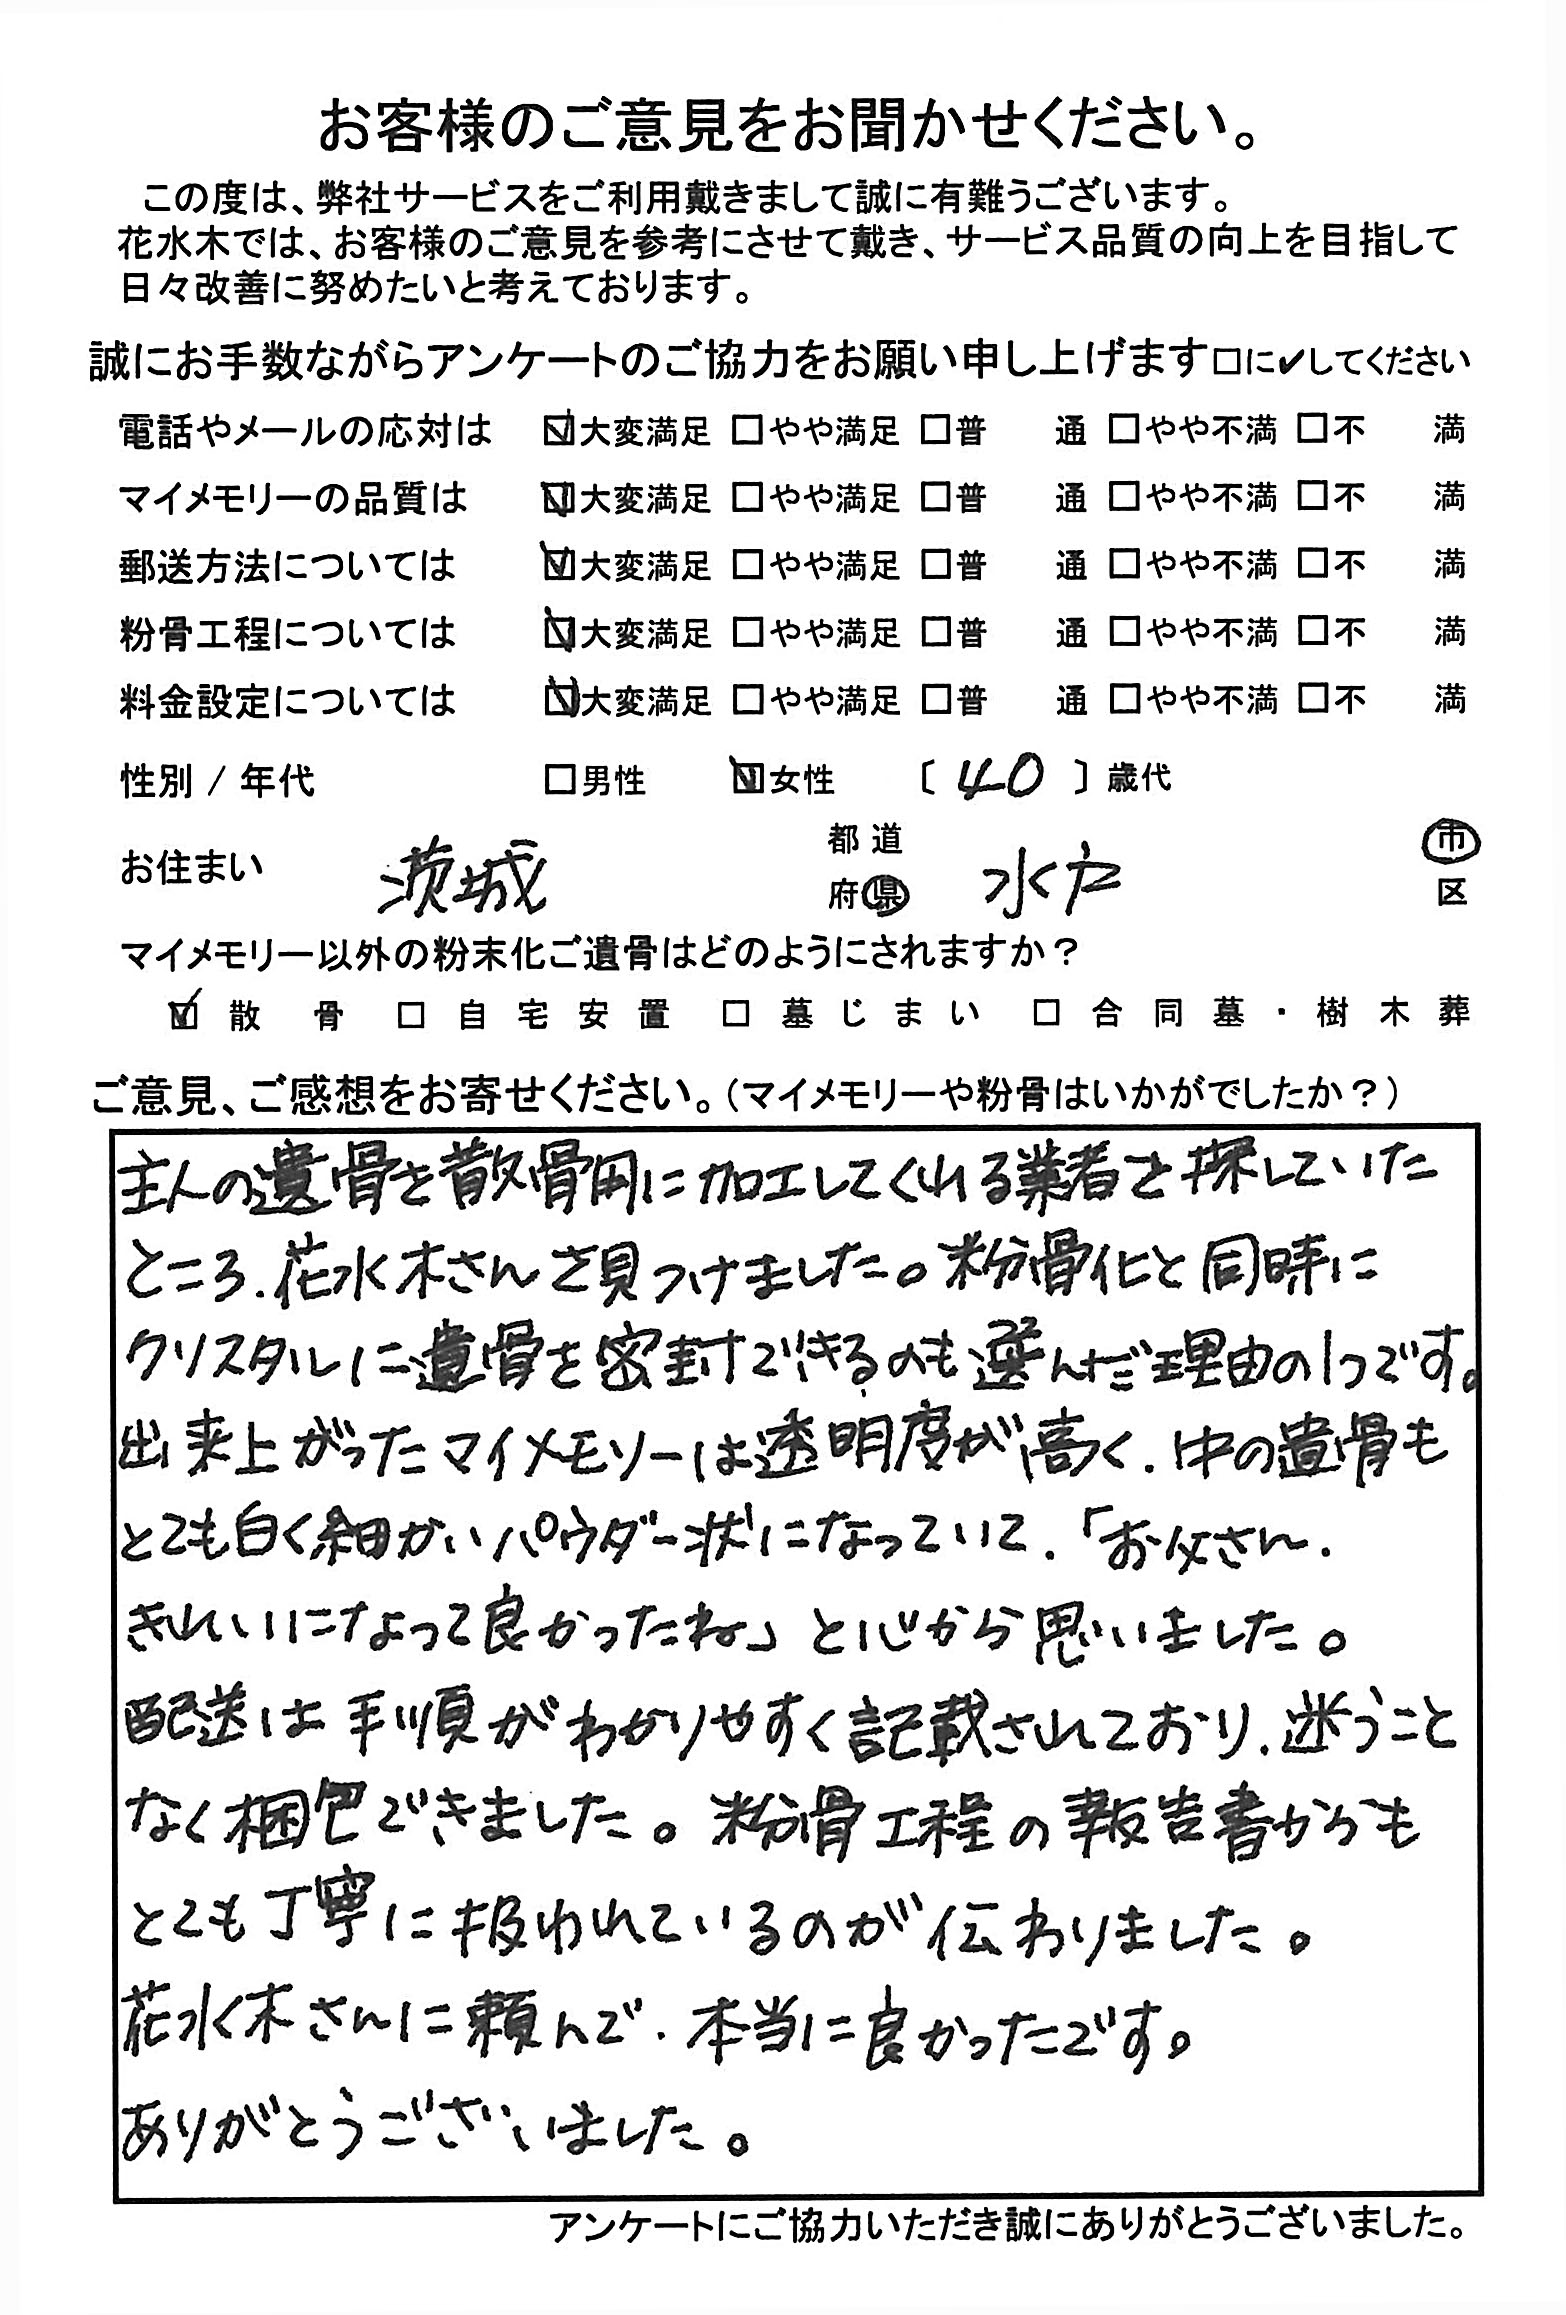 お客様のご意見をお聞かせください。
この度は、弊社サービスをご利用戴きまして誠に有難うございます。
花水木では、お客様のご意見を参考にさせて戴き、サービス品質の向上を目指して
日々改善に努めたいと考えております。
誠にお手数ながらアンケートのご協力をお願い申し上げます□に✔してください
電話やメールの応対は ☑大変満足 □やや満足 □普 通 □やや不満 □不 満
マイメモリーの品質は ☑大変満足 □やや満足 □普 通 □やや不満 □不 満
郵送方法については ☑大変満足 □やや満足 □普 通 □やや不満 □不 満
粉骨工程については ☑大変満足 □やや満足 □普 通 □やや不満 □不 満
料金設定については ☑大変満足 □やや満足 □普 通 □やや不満 □不 満
性別 / 年代 □男性 ☑女性 〔 40 〕歳代
お住まい 茨城 都道府県 水戸 市区
マイメモリー以外の粉末化ご遺骨はどのようにされますか？
☑ 散骨 □ 自宅安置 □ 墓じまい □ 合同墓・樹木葬
ご意見、ご感想をお寄せください。（マイメモリーや粉骨はいかがでしたか？）
主人の遺骨を散骨用に加工してくれる業者を探していた
ところ、花水木さんを見つけました。粉骨化と同時に
クリスタルに遺骨を密封できるのも選んだ理由の1つです。
出来上がったマイメモリーは透明度が高く、中の遺骨も
とても白く細かいパウダー状になっていて、「お父さん、
きれいになって良かったね」と心から思いました。
配送は手順がわかりやすく記載されており、迷うこと
なく梱包できました。粉骨工程の報告書からも
とても丁寧に扱われているのが伝わりました。
花水木さんに頼んで、本当に良かったです。
ありがとうございました。
アンケートにご協力いただき誠にありがとうございました。